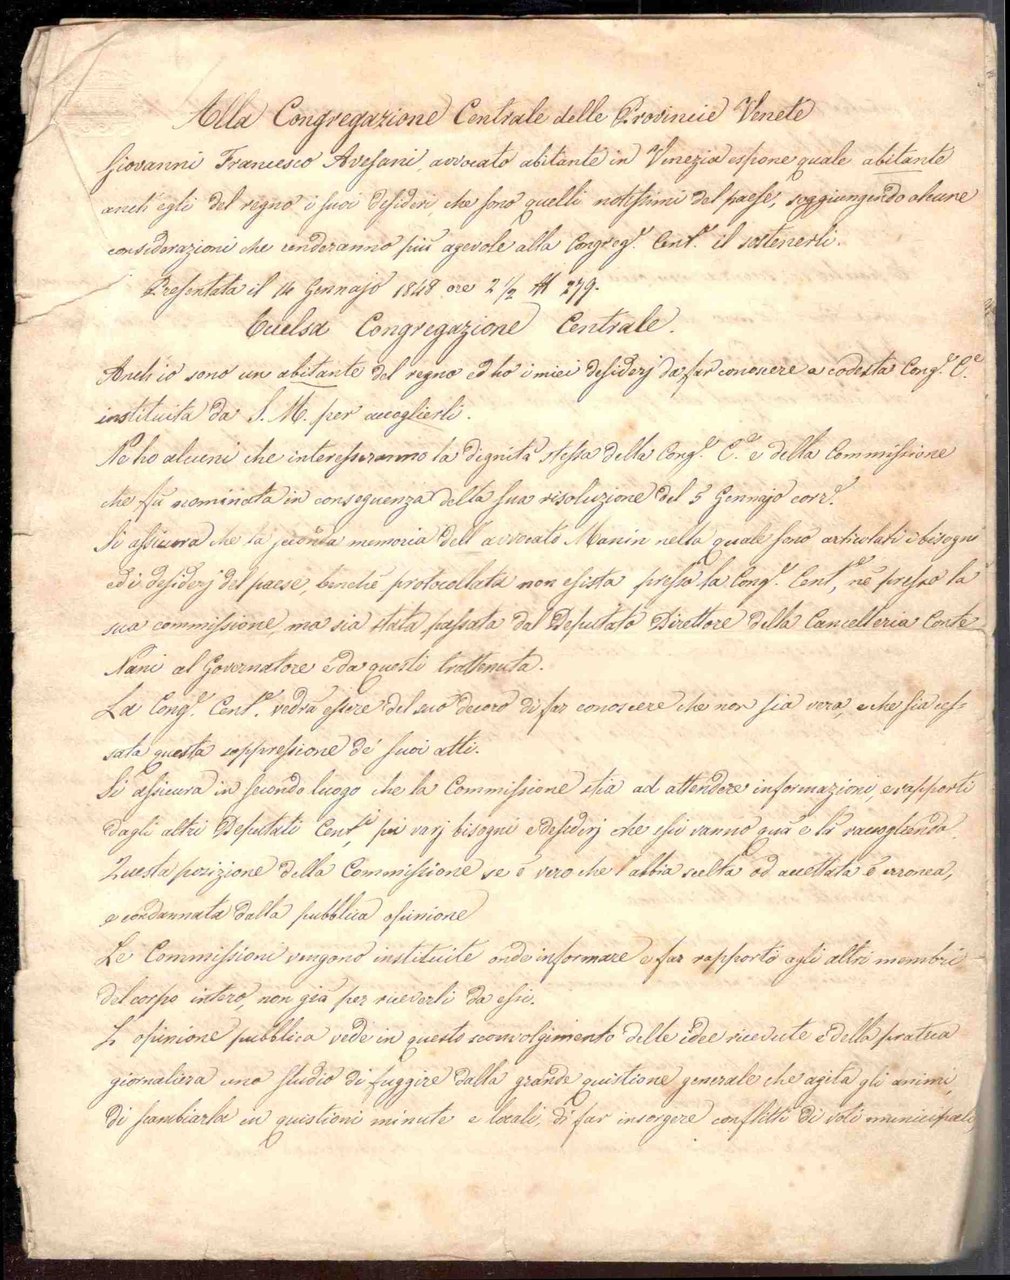 Alla Congregazione Centrale delle Provincie Venete
Giovanni Francesco Avesani, avvocato abitante in Venezia espone quale abitante
anch'egli del regno i suoi desiderj, che sono quelli notissimi del paese, soggiungendo alcune
considerazioni che renderanno più agevole alla Congreg.e Cent.e il sostenerli.
Presentata il 14 Gennajo 1848 ore 2 1/2 N 279.
Eccelsa Congregazione Centrale.
Anch'io sono un abitante del regno ed ho i miei desiderj da far conoscere a codesta Cong.e C.e
instituita da S. M. per accoglierli.
Ne ho alcuni che interesseranno la dignità stessa della Cong.e C.e e della Commissione
che fù nominata in conseguenza della sua risoluzione del 5 Gennajo corr.e
Si assicura che la memoria dell'avvocato Manin nella quale sono articolati i bisogni
ed i desiderj del paese, benchè protocollata non esista presso la Cong.e Cent.e, nè presso la
sua commissione, ma sia stata passata dal Deputato Direttore della Cancelleria Conte
Nani al Governatore e da questi trattenuta.
La Cong.e Cent.e vedrà essere del suo decoro di far conoscere che non sia vera, e che sia ces-
sata questa soppressione de' suoi atti.
Si assicura in secondo luogo che la Commissione stia ad attendere informazioni, e rapporti
dagli altri Deputati Cent.i pei varj bisogni e desiderj che essi vanno quà e là raccogliendo.
Questa posizione della Commissione se è vero che l'abbia scelta od accettata è erronea,
e condannata dalla pubblica opinione
Le Commissioni vengono instituite onde informare e far rapporto agli altri membri
del corpo intero, non già per riceverli da essi.
L'opinione pubblica vede in questo sconvolgimento delle idee ricevute e della pratica
giornaliera uno studio di fuggire dalla grande quistione generale che agita gli animi,
di scambiarla in quistioni minute e locali, di far insorgere conflitti di voti municipali